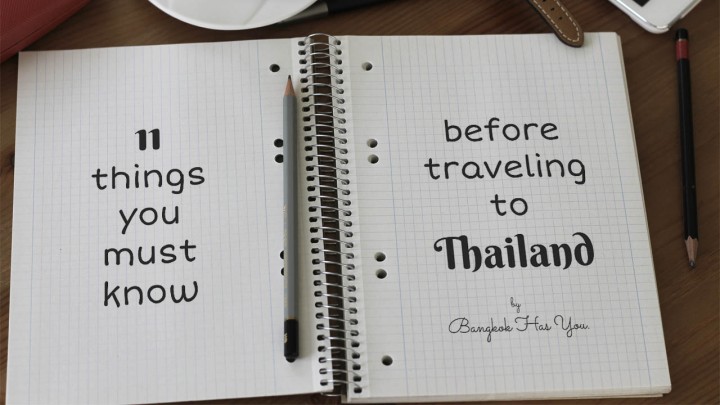 11
things
you
must
know
before
traveling
to
Thailand
by
Bangkok Has You.